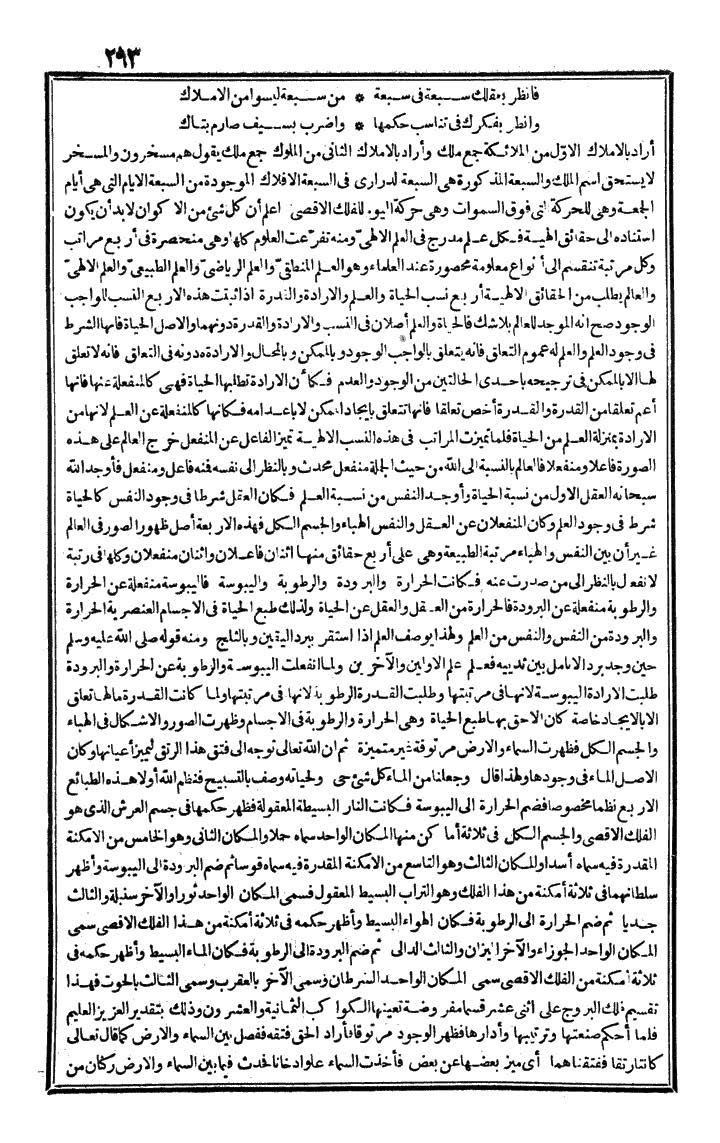 ٢٩٣
فانظر بعقلك سبعة فى سبعة * من سبعة ليسوا من الاملاك
وانظر بفكرك فى تناسب حكمها * واضرب بسيف صارم بتاك
أراد بالاملاك الاوّل من الملائكة جمع ملك وأراد بالاملاك الثانى من الملوك جمع ملك يقول هم مسخرون والمسخر
لا يستحق اسم الملك والسبعة المذكورة هى السبعة الدرارى فى السبعة الافلاك الموجودة من السبعة الايام التى هى أيام
الجمعة وهى للحركة التى فوق السموات وهى حركة اليو. للفلك الاقصى اعلم أن كل شئ من الاكوان لا بد أن يكون
استناده الى حقائق الهية فكل علم مدرج فى العلم الالهىّ ومنه تفرّعت العلوم كلها وهى منحصرة فى أربع مراتب
وكل مرتبة تنقسم الى أنواع معلومة محصورة عند العلماء وهو العلم المنطقىّ والعلم الرياضىّ والعلم الطبيعىّ والعلم الالهىّ
والعالم يطلب من الحقائق الالهية أربع نسب الحياة والعلم والارادة والقدرة اذا ثبتت هذه الاربع النسب للواجب
الوجود صح انه الموجد للعالم بلا شك فالحياة والعلم أصلان فى النسب والارادة والقدرة دونهما والاصل الحياة فانها الشرط
فى وجود العلم والعلم له عموم التعلق فانه يتعلق بالواجب الوجود وبالممكن وبالمحال والارادة دونه فى التعلق فانه لا تعلق
لها الا بالممكن فى ترجيحه باحدى الحالتين من الوجود والعدم فكأن الارادة تطلبها الحياة فهى كالمنفعلة عنها فانها
أعم تعلقا من القدرة والقدرة أخص تعلقا فانها تتعلق بايجاد الممكن لا باعدامه فكانها كالمنفعلة عن العلم لانها من
الارادة بمنزلة العلم من الحياة فلما تميزت المراتب فى هذه النسب الالهية تميز الفاعل عن المنفعل خرج العالم على هذه
الصورة فاعلا ومنفعلا فالعالم بالنسبة الى الله من حيث الجملة منفعل محدث وبالنظر الى نفسه فمنه فاعل ومنفعل فأوجد الله
سبحانه العقل الاول من نسبة الحياة وأوجد النفس من نسبة العلم فكان العقل شرطا فى وجود النفس كالحياة
شرط فى وجود العلم وكان المنفعلان عن العقل والنفس الهباء والجسم الكل فهذه الاربعة أصل ظهور الصور فى العالم
غير أن بين النفس والهباء مرتبة الطبيعة وهى على أربع حقائق منها اثنان فاعلان واثنان منفعلان وكلها فى رتبة
الانفعال بالنظر الى من صدرت عنه فكانت الحرارة والبرودة والرطوبة واليبوسة فاليبوسة منفعلة عن الحرارة
والرطوبة منفعلة عن البرودة فالحرارة من العقل والعقل عن الحياة ولذلك طبع الحياة فى الاجسام العنصرية الحرارة
والبرودة من النفس والنفس من العلم ولهذا يوصف العلم اذا استقر ببرد اليقين وبالثلج ومنه قوله صلى الله عليه وسلم
حين وجد برد الانامل بين ثدييه فعلم علم الاولين والآخرين ولما انفعلت اليبوسة والرطوبة عن الحرارة والبرودة
طلبت الارادة اليبوسة لانها فى مرتبتها وطلبت القدرة الرطوبة لانها فى مرتبتها ولما كانت القدرة مالها تعلق
الا بالايجاد خاصة كان الاحق بها طبع الحياة وهى الحرارة والرطوبة فى الاجسام وظهرت الصور والاشكال فى الهباء
والجسم الكل فظهرت السماء والارض مرتوقة غير متميزة ثم ان الله تعالى توجه الى فتق هذا الرتق ليميز أعيانها وكان
الاصل الماء فى وجودها ولهذا قال وجعلنا من الماء كل شئ حى ولحياته وصف بالتسبيح فنظم الله أولا هذه الطبائع
الاربع نظما مخصوصا فضم الحرارة الى اليبوسة فكانت النار البسيطة المعقولة فظهر حكمها فى جسم العرش الذى هو
الفلك الاقصى والجسم الكل فى ثلاثة أماكن منها المكان الواحد سماه حملا والمكان الثانى وهو الخامس من الامكنة
المقدرة فيه سماه أسدا والمكان الثالث وهو التاسع من الامكنة المقدرة فيه سماه قوسا ثم ضم البرودة الى اليبوسة وأظهر
سلطانهما فى ثلاثة أمكنة من هذا الفلك وهو التراب البسيط المعقول فسمى المكان الواحد ثورا والآخر سنبلة والثالث
جديا ثم ضم الحرارة الى الرطوبة فكان الهواء البسيط وأظهر حكمه فى ثلاثة أمكنة من هذا الفلك الاقصى سمى
المكان الواحد الجوزاء والآخر الميزان والثالث الدالى ثم ضم البرودة الى الرطوبة فكان الماء البسيط وأظهر حكمه فى
ثلاثة أمكنة من الفلك الاقصى سمى المكان الواحد السرطان وسمى الآخر بالعقرب وسمى الثالث بالحوت فهذا
تقسيم فلك البروج على اثنى عشر قسما مفروضة تعينها الكواكب الثمانية والعشرون وذلك بتقدير العزيز العليم
فلما أحكم صنعتها وترتيبها وأدارها فظهر الوجود مرتوقا فأراد الحق فتقه ففصل بين السماء والارض كما قال تعالى
كانتا رتقا ففتقناهما أى ميز بعضها عن بعض فأخذت السماء علوا دخانا فحدث فيما بين السماء والارض ركنان من